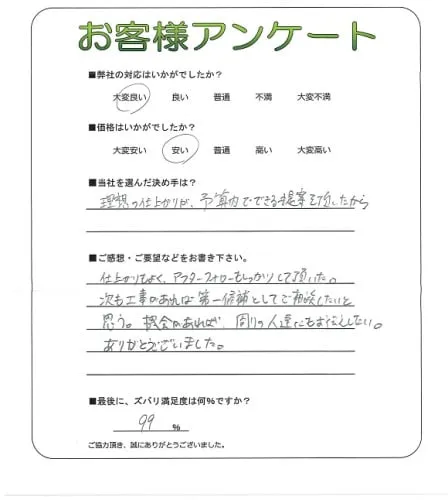 お客様アンケート
■弊社の対応はいかがでしたか？
大変良い 良い 普通 不満 大変不満
■価格はいかがでしたか？
大変安い 安い 普通 高い 大変高い
■当社を選んだ決め手は？
理想の仕上がりが、予算内でできる提案を頂したから
■ご感想・ご要望などをお書き下さい。
仕上がりもよく、アフターフォローもしっかりして頂いた。
次も工事があれば第一候補としてご相談したいと
思う。機会があれば、周りの人達にもお伝えしたい。
ありがとうございました。
■最後に、ズバリ満足度は何％ですか？
99 %
ご協力頂き、誠にありがとうございました。